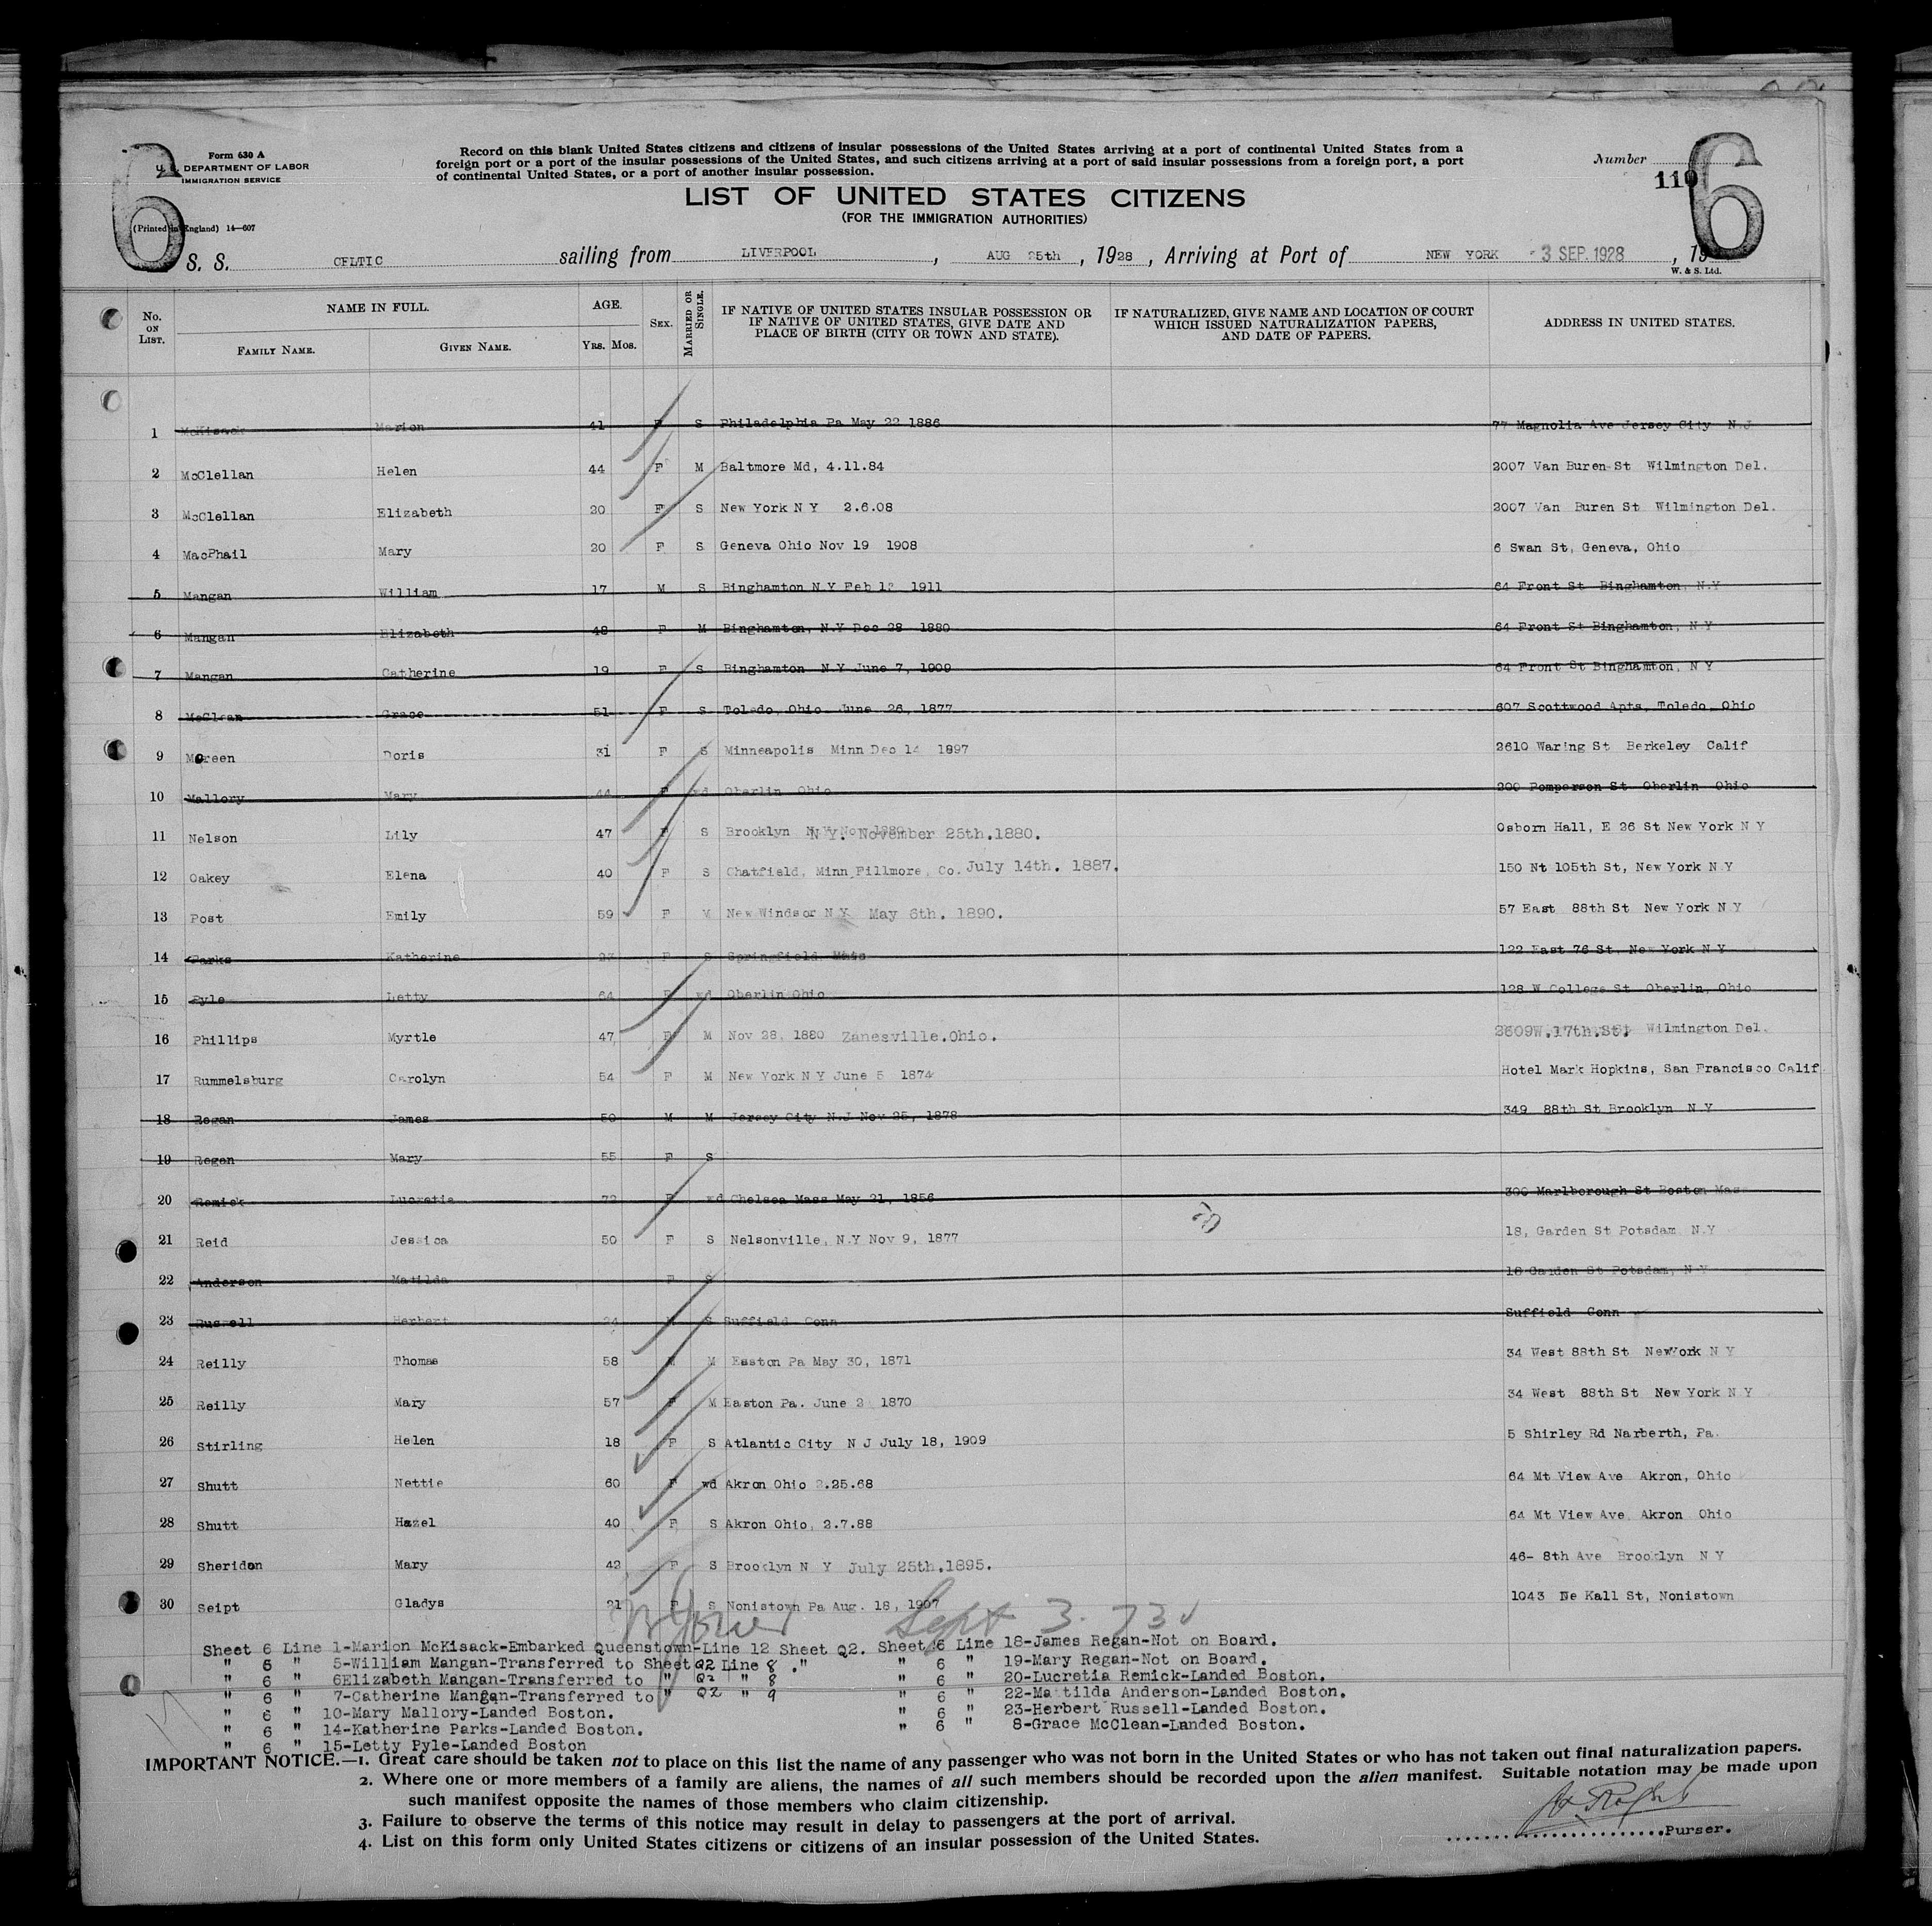 Form 630 A
U. S. DEPARTMENT OF LABOR
IMMIGRATION SERVICE
(Printed in England) 14—607
6
Record on this blank United States citizens and citizens of insular possessions of the United States arriving at a port of continental United States from a
foreign port or a port of the insular possessions of the United States, and such citizens arriving at a port of said insular possessions from a foreign port, a port
of continental United States, or a port of another insular possession.
Number
110
6
LIST OF UNITED STATES CITIZENS
(FOR THE IMMIGRATION AUTHORITIES)
S. S. CELTIC sailing from LIVERPOOL, AUG 25th, 1928, Arriving at Port of NEW YORK 3 SEP. 1928, 19
W. & S. Ltd.
No. ON LIST. NAME IN FULL. FAMILY NAME. GIVEN NAME. AGE. YRS. MOS. SEX. MARRIED OR SINGLE. IF NATIVE OF UNITED STATES INSULAR POSSESSION OR IF NATIVE OF UNITED STATES, GIVE DATE AND PLACE OF BIRTH (CITY OR TOWN AND STATE). IF NATURALIZED, GIVE NAME AND LOCATION OF COURT WHICH ISSUED NATURALIZATION PAPERS, AND DATE OF PAPERS. ADDRESS IN UNITED STATES.
1 McKisack Marion 41 F S Philadelphia Pa May 22 1886 77 Magnolia Ave Jersey City N.J
2 McClellan Helen 44 F M Baltmore Md, 4.11.84 2007 Van Buren St Wilmington Del.
3 McClellan Elizabeth 20 F S New York N Y 2.6.08 2007 Van Buren St Wilmington Del.
4 MacPhail Mary 20 F S Geneva Ohio Nov 19 1908 6 Swan St, Geneva, Ohio
5 Mangan William 17 M S Binghamton N.Y Feb 12 1911 64 Front St Binghamton, N.Y
6 Mangan Elizabeth 48 F M Binghamton, N.Y Dec 28 1880 64 Front St Binghamton, N Y
7 Mangan Catherine 19 F S Binghamton N.Y June 7, 1909 64 Front St Binghamton, N Y
8 McClean Grace 51 F S Toledo, Ohio June 26, 1877 607 Scottwood Apts, Toledo, Ohio
9 Moreen Doris 31 F S Minneapolis Minn Dec 14 1897 2610 Waring St Berkeley Calif
10 Mallory Mary 44 F wd Oberlin Ohio 200 Pomperson St Oberlin Ohio
11 Nelson Lily 47 F S Brooklyn N Y. November 25th.1880. Osborn Hall, E 26 St New York N Y
12 Oakey Elena 40 F S Chatfield, Minn Fillmore, Co. July 14th. 1887. 150 Nt 105th St, New York N Y
13 Post Emily 59 F M New Windsor N Y May 6th. 1890. 57 East 88th St New York N Y
14 Parks Katherine F S Springfield 122 East 76 St, New York N Y
15 Pyle Letty 64 F wd Oberlin Ohio 128 W College St Oberlin, Ohio
16 Phillips Myrtle 47 F M Nov 28, 1880 Zanesville.Ohio. 2609W.17th.St. Wilmington Del.
17 Rummelsburg Carolyn 54 F M New York N Y June 5 1874 Hotel Mark Hopkins, San Francisco Calif
18 Regan James 50 M M Jersey City N.J Nov 25, 1878 349 88th St Brooklyn N Y
19 Regan Mary 55 F S
20 Remick Lucretia 72 F wd Chelsea Mass May 21, 1856 300 Marlborough St Boston Mass
21 Reid Jessica 50 F S Nelsonville, N.Y Nov 9, 1877 18, Garden St Potsdam N.Y
22 Anderson Matilda F S 18 Garden St Potsdam, N Y
23 Russell Herbert 24 M S Suffield Conn Suffield Conn
24 Reilly Thomas 58 M M Easton Pa May 30, 1871 34 West 88th St NewYork N Y
25 Reilly Mary 57 F M Easton Pa. June 2 1870 34 West 88th St New York N Y
26 Stirling Helen 18 F S Atlantic City N J July 18, 1909 5 Shirley Rd Narberth, Pa.
27 Shutt Nettie 60 F wd Akron Ohio 2.25.68 64 Mt View Ave Akron, Ohio
28 Shutt Hazel 40 F S Akron Ohio, 2.7.88 64 Mt View Ave. Akron Ohio
29 Sheridan Mary 42 F S Brooklyn N Y July 25th.1895. 46- 8th Ave Brooklyn N Y
30 Seipt Gladys 21 F S Nonistown Pa Aug. 18, 1907 1043 De Kall St, Nonistown
Sept 3.
Sheet 6 Line 1-Marion McKisack-Embarked Queenstown-Line 12 Sheet Q2. Sheet 6 Line 18-James Regan-Not on Board.
" 6 " 5-William Mangan-Transferred to Sheet Q2 Line 8 ." " 6 " 19-Mary Regan-Not on Board.
" 6 6Elizabeth Mangan-Transferred to " Q2 " 8 " 6 " 20-Lucretia Remick-Landed Boston.
" 6 " 7-Catherine Mangan-Transferred to " Q2 " 9 " 6 " 22-Matilda Anderson-Landed Boston.
" 6 " 10-Mary Mallory-Landed Boston. " 6 " 23-Herbert Russell-Landed Boston.
" 6 " 14-Katherine Parks-Landed Boston. " 6 " 8-Grace McClean-Landed Boston.
" 6 " 15-Letty Pyle-Landed Boston
IMPORTANT NOTICE.—1. Great care should be taken not to place on this list the name of any passenger who was not born in the United States or who has not taken out final naturalization papers.
2. Where one or more members of a family are aliens, the names of all such members should be recorded upon the alien manifest. Suitable notation may be made upon
such manifest opposite the names of those members who claim citizenship.
3. Failure to observe the terms of this notice may result in delay to passengers at the port of arrival.
4. List on this form only United States citizens or citizens of an insular possession of the United States.
Purser.